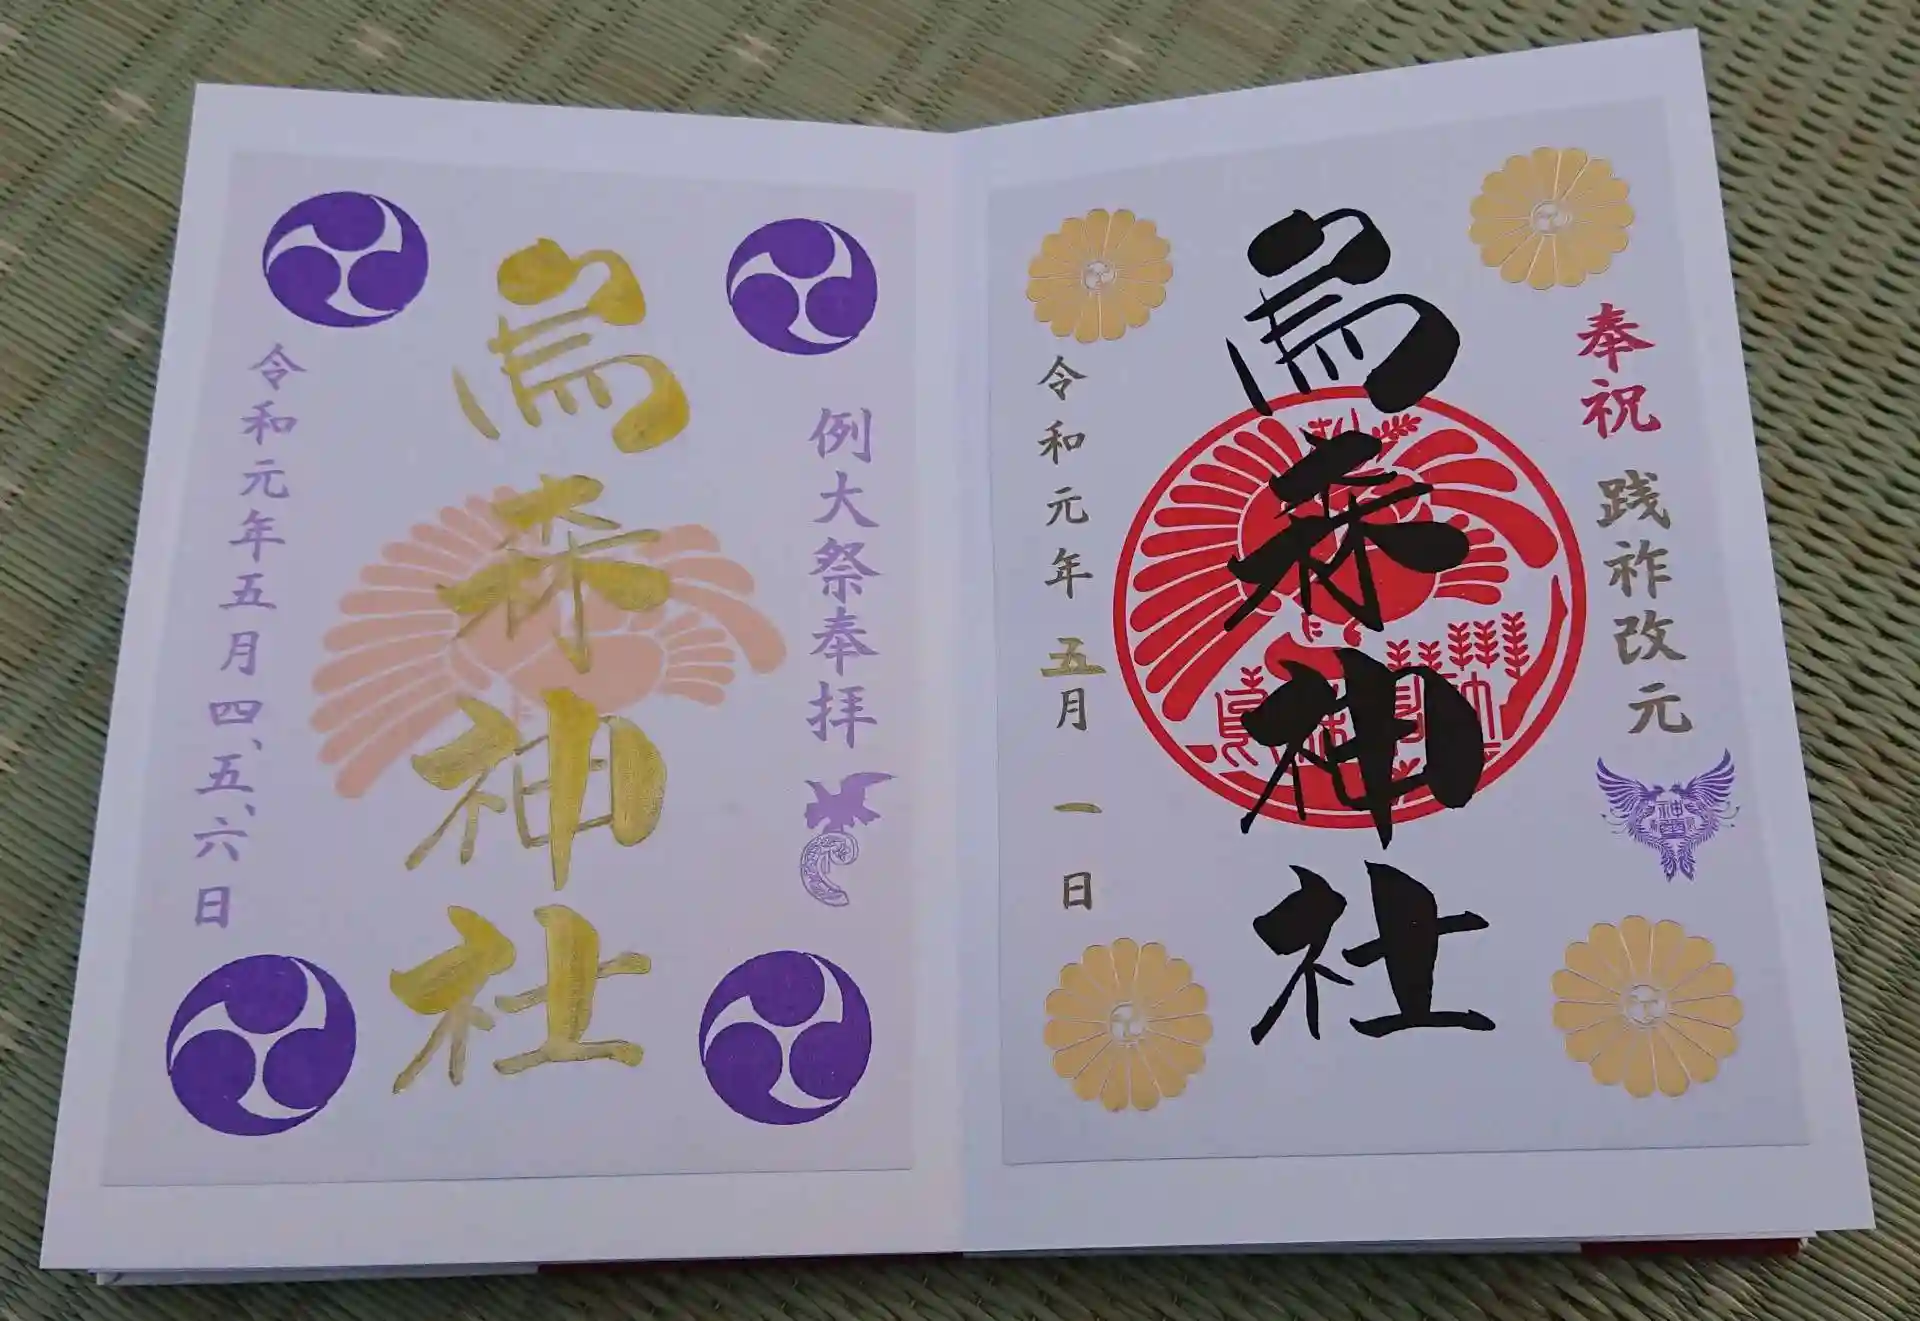 奉祝 践祚改元
烏森神社
令和元年 五月 一 日
例大祭奉拝
烏森神社
令和元年五月四、五、六日